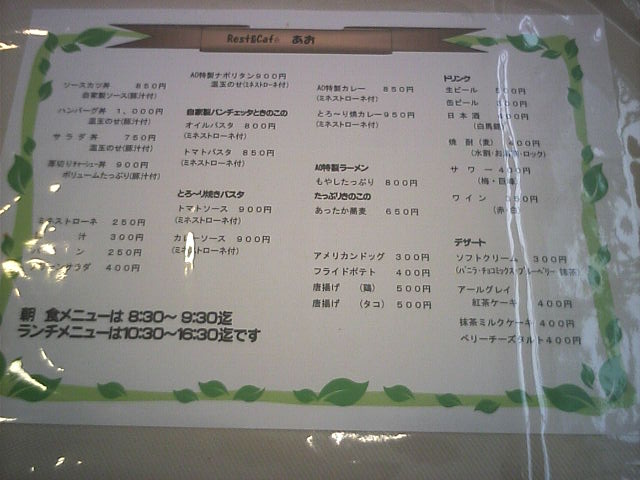 Rest&Cafe あお
ソースカツ丼 850円
自家製ソース(豚汁付)
ハンバーグ丼 1,000円
温玉のせ(豚汁付)
サラダ丼 750円
温玉のせ(豚汁付)
厚切りチャーシュー丼 900円
ボリュームたっぷり(豚汁付)
ミネストローネ 250円
汁 300円
ン 250円
サラダ 400円
AO特製ナポリタン900円
温玉のせ(ミネストローネ付)
自家製パンチェッタときのこの
オイルパスタ 800円
(ミネストローネ付)
トマトパスタ 850円
(ミネストローネ付)
とろ〜り焼きパスタ
トマトソース 900円
(ミネストローネ付)
カレーソース 900円
(ミネストローネ付)
AO特製カレー 850円
(ミネストローネ付)
とろ〜り焼カレー950円
(ミネストローネ付)
AO特製ラーメン
もやしたっぷり 800円
たっぷりきのこの
あったか蕎麦 650円
アメリカンドッグ 300円
フライドポテト 400円
唐揚げ (鶏) 500円
唐揚げ (タコ) 500円
ドリンク
生ビール 500円
缶ビール 円
日本酒 円
(白馬錦)
焼酎(麦) 400円
(水割・お湯割・ロック)
サワー 400円
(梅・巨峰)
ワイン 350円
(赤・白)
デザート
ソフトクリーム 300円
(バニラ・チョコミックス・ブルーベリー 抹茶)
アールグレイ
紅茶ケーキ 400円
抹茶ミルクケーキ 400円
ベリーチーズタルト400円
朝 食メニューは 8:30〜 9:30迄
ランチメニューは10:30〜16:30迄です